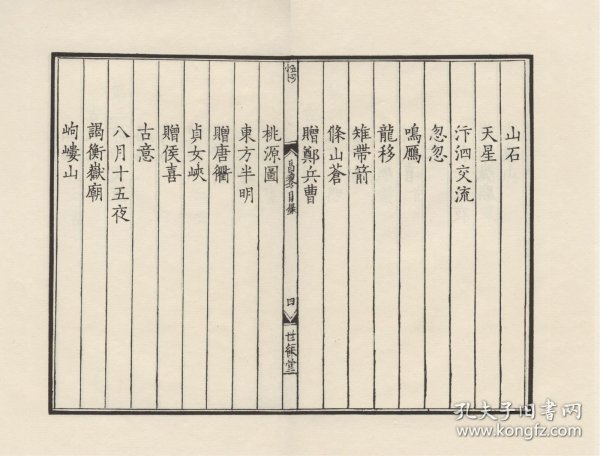 山石
天星
汴泗交流
忽忽
鳴鴈
龍移
雉帶箭
條山蒼
贈鄭兵曹
昌黎目錄
四
世綵堂
桃源圖
東方半明
贈唐衢
貞女峽
贈侯喜
古意
八月十五夜
謁衡嶽廟
岣嶁山
孔夫子旧书网
www.kongfz.com